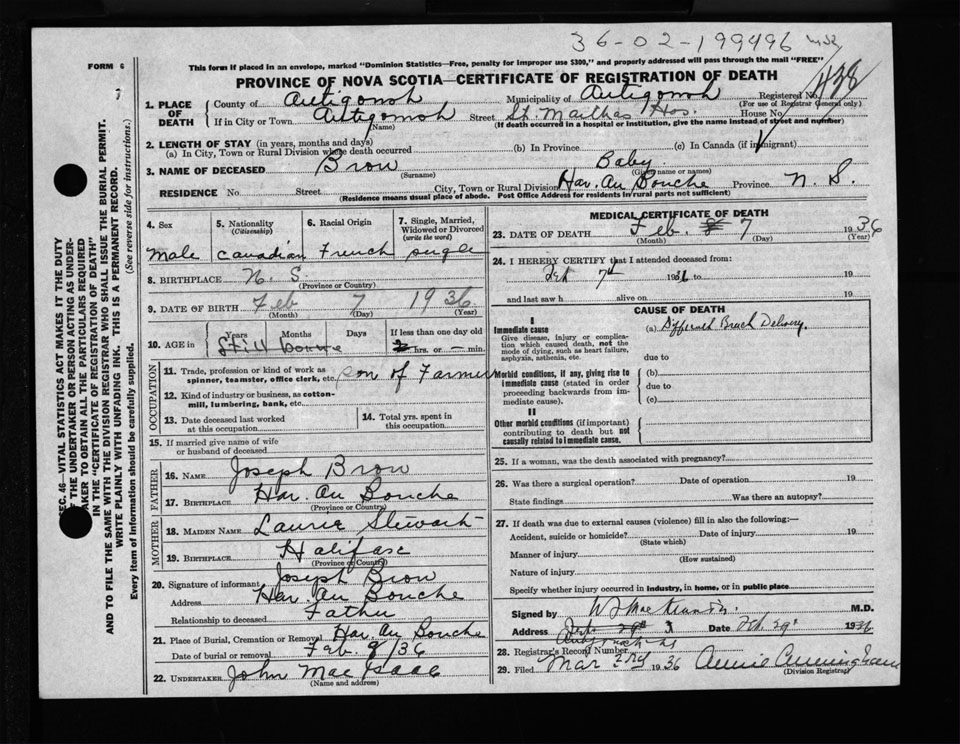 36-02-199496
FORM 6
This form if placed in an envelope, marked "Dominion Statistics—Free, penalty for improper use $300," and properly addressed will pass through the mail "FREE"
PROVINCE OF NOVA SCOTIA—CERTIFICATE OF REGISTRATION OF DEATH
1. PLACE OF DEATH
County of Antigonish Municipality of Antigonish Registered No. 438
(For use of Registrar General only)
If in City or Town Antigonish Street St. Marthas Hos. House No.
(Name) (If death occurred in a hospital or institution, give the name instead of street and number)
2. LENGTH OF STAY (in years, months and days)
(a) In City, Town or Rural Division where death occurred (b) In Province (c) In Canada (if immigrant)
3. NAME OF DECEASED Brow Baby
(Surname) (Given name or names)
RESIDENCE No. Street City, Town or Rural Division Har. Au Bouche Province N. S.
(Residence means usual place of abode. Post Office Address for residents in rural parts not sufficient)
4. Sex 5. Nationality (Citizenship) 6. Racial Origin 7. Single, Married, Widowed or Divorced (write the word)
Male Canadian French single
8. BIRTHPLACE N. S.
(Province or Country)
9. DATE OF BIRTH Feb 7 1936
(Month) (Day) (Year)
10. AGE in Years Months Days If less than one day old
Still borne 2 hrs. or – min.
OCCUPATION
11. Trade, profession or kind of work as spinner, teamster, office clerk, etc. son of Farmer
12. Kind of industry or business, as cotton-mill, lumbering, bank, etc.
13. Date deceased last worked at this occupation
14. Total yrs. spent in this occupation
15. If married give name of wife or husband of deceased
FATHER
16. NAME Joseph Brow
17. BIRTHPLACE Har. Au Bouche
(Province or Country)
MOTHER
18. MAIDEN NAME Laurie Stewart
19. BIRTHPLACE Halifax
(Province or Country)
20. Signature of informant Joseph Brow
Address Har. Au Bouche
Relationship to deceased Father
21. Place of Burial, Cremation or Removal Har. Au Bouche
Date of burial or removal Feb. 9/36
22. UNDERTAKER John Mac Isaac
(Name and address)
MEDICAL CERTIFICATE OF DEATH
23. DATE OF DEATH Feb. 8 7 1936
(Month) (Day) (Year)
24. I HEREBY CERTIFY that I attended deceased from:
Feb 7th 1936 to 19
and last saw h alive on 19
CAUSE OF DEATH
I
Immediate cause
Give disease, injury or complication which caused death, not the mode of dying, such as heart failure, asphyxia, asthenia, etc.
(a) Breach Delivery
due to
Morbid conditions, if any, giving rise to immediate cause (stated in order proceeding backwards from immediate cause).
(b)
due to
(c)
II
Other morbid conditions (if important) contributing to death but not causally related to immediate cause.
25. If a woman, was the death associated with pregnancy?
26. Was there a surgical operation? Date of operation 19
State findings Was there an autopsy?
27. If death was due to external causes (violence) fill in also the following:—
Accident, suicide or homicide? Date of injury 19
(State which)
Manner of injury
(How sustained)
Nature of injury
Specify whether injury occurred in industry, in home, or in public place
Signed by M.D.
Address Date Feb. 29 1936
28. Registrar's Record Number
29. Filed Mar 3rd 1936 Annie Cunningham
(Division Registrar)
SEC. 46—VITAL STATISTICS ACT MAKES IT THE DUTY
OF THE UNDERTAKER OR PERSON ACTING AS UNDER-
TAKER TO OBTAIN ALL THE PARTICULARS REQUIRED
IN THE "CERTIFICATE OF REGISTRATION OF DEATH"
AND TO FILE THE SAME WITH THE DIVISION REGISTRAR WHO SHALL ISSUE THE BURIAL PERMIT.
WRITE PLAINLY WITH UNFADING INK. THIS IS A PERMANENT RECORD.
Every item of information should be carefully supplied. (See reverse side for instructions.)